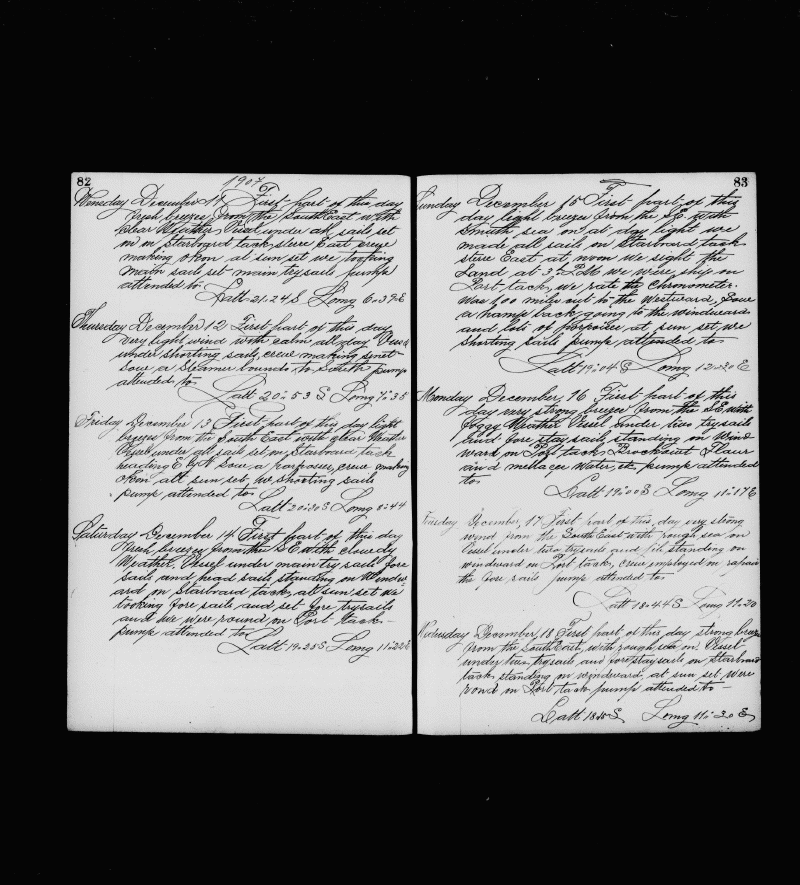 82
1907
Wensday December 11 First part of this day
fresh breeze from the South East with
clear Weather Vesel under all sails set
on in Starboard tack stere East crewe
making okon at sun set we tooking
main sails set main trysails pump
attended to
Latt 21.24 S Long 6.37 E
Thursday December 12 First part of this day
very light wind with calm all day Vesel
under shorting sails, crewe making sinet
sow a Steamer bounds to South pump
attended to
Latt 20.53 S Long 7.35
Friday December 13 First part of this day light
breeze from the South East with clear Weather
Vesel under all sails set on Starboard tack
heading E sow a porposes, crewe making
okon all sun set we shorting sails
pump attended to
Latt 20.20 S Long 8.44
Saturday December 14 First part of this day
fresh breeze from the S E with clowdy
Weather, Vesel under main try sails fore
sails and head sails standing on Windw
ard on Starboard tack, at sun set we
tooking fore sails and set fore trysails
and we were round on Port tack
pump attended to
Latt 19.25 S Long 11.22 E
83
Sunday December 15 First part of this
day light breeze from the S E with
smuth sea on at day light we
made all sail on Starboard tack
stere East at noon we sight the
Land at 3 P M we were ship on
Port tack, we rate the Chronometer
was 100 mile out to the Westward, Sow
a hump back going to the windward
and lots of porpoise at sun set, we
shorting sails pump attended to
Latt 19.04 S Long 12.20 E
Monday December, 16 First part of this
day very strong breeze from the S E with
foggy Weather Vesel under two trysails
and fore staysails standing on Wind
ward on Port tack Brockout Flaur
and melases water, etc, pump attended
to
Latt 19.00 S Long 11.17 E
Tuesday December, 17 First part of this day very strong
wind from the South East with rough sea on
Vesel under two trysails and jib standing on
windward on Port tack, crewe employed in repair
the fore sails pump attended to
Latt 18.44 S Long 11.20
Wedursday December 18 First part of this day strong breeze
from the South East, with rough sea on Vesel
under two trysails and fore staysails on Starboard
tack standing on windward, at sun set were
round on Port tack pump attended to
Latt 18.15 S Long 11.30 E